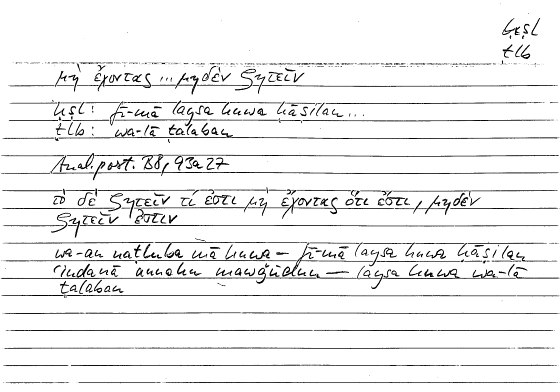 ḥṣl
ṭlb
μὴ ἔχοντας ... μηδέν ζητεῖν
ḥṣl: fī-mā laysa huwa ḥāṣilan...
ṭlb: wa-lā ṭalaban
Anal. post. B8, 93a27
τὸ δὲ ζητεῖν τί ἐστι μὴ ἔχοντας ὅτι ἔστι, μηδέν
ζητεῖν ἐστιν
wa-an naṭluba mā huwa — fī-mā laysa huwa ḥāṣilan
ʿindanā annahu mawǧūdun — laysa huwa wa-lā
ṭalaban